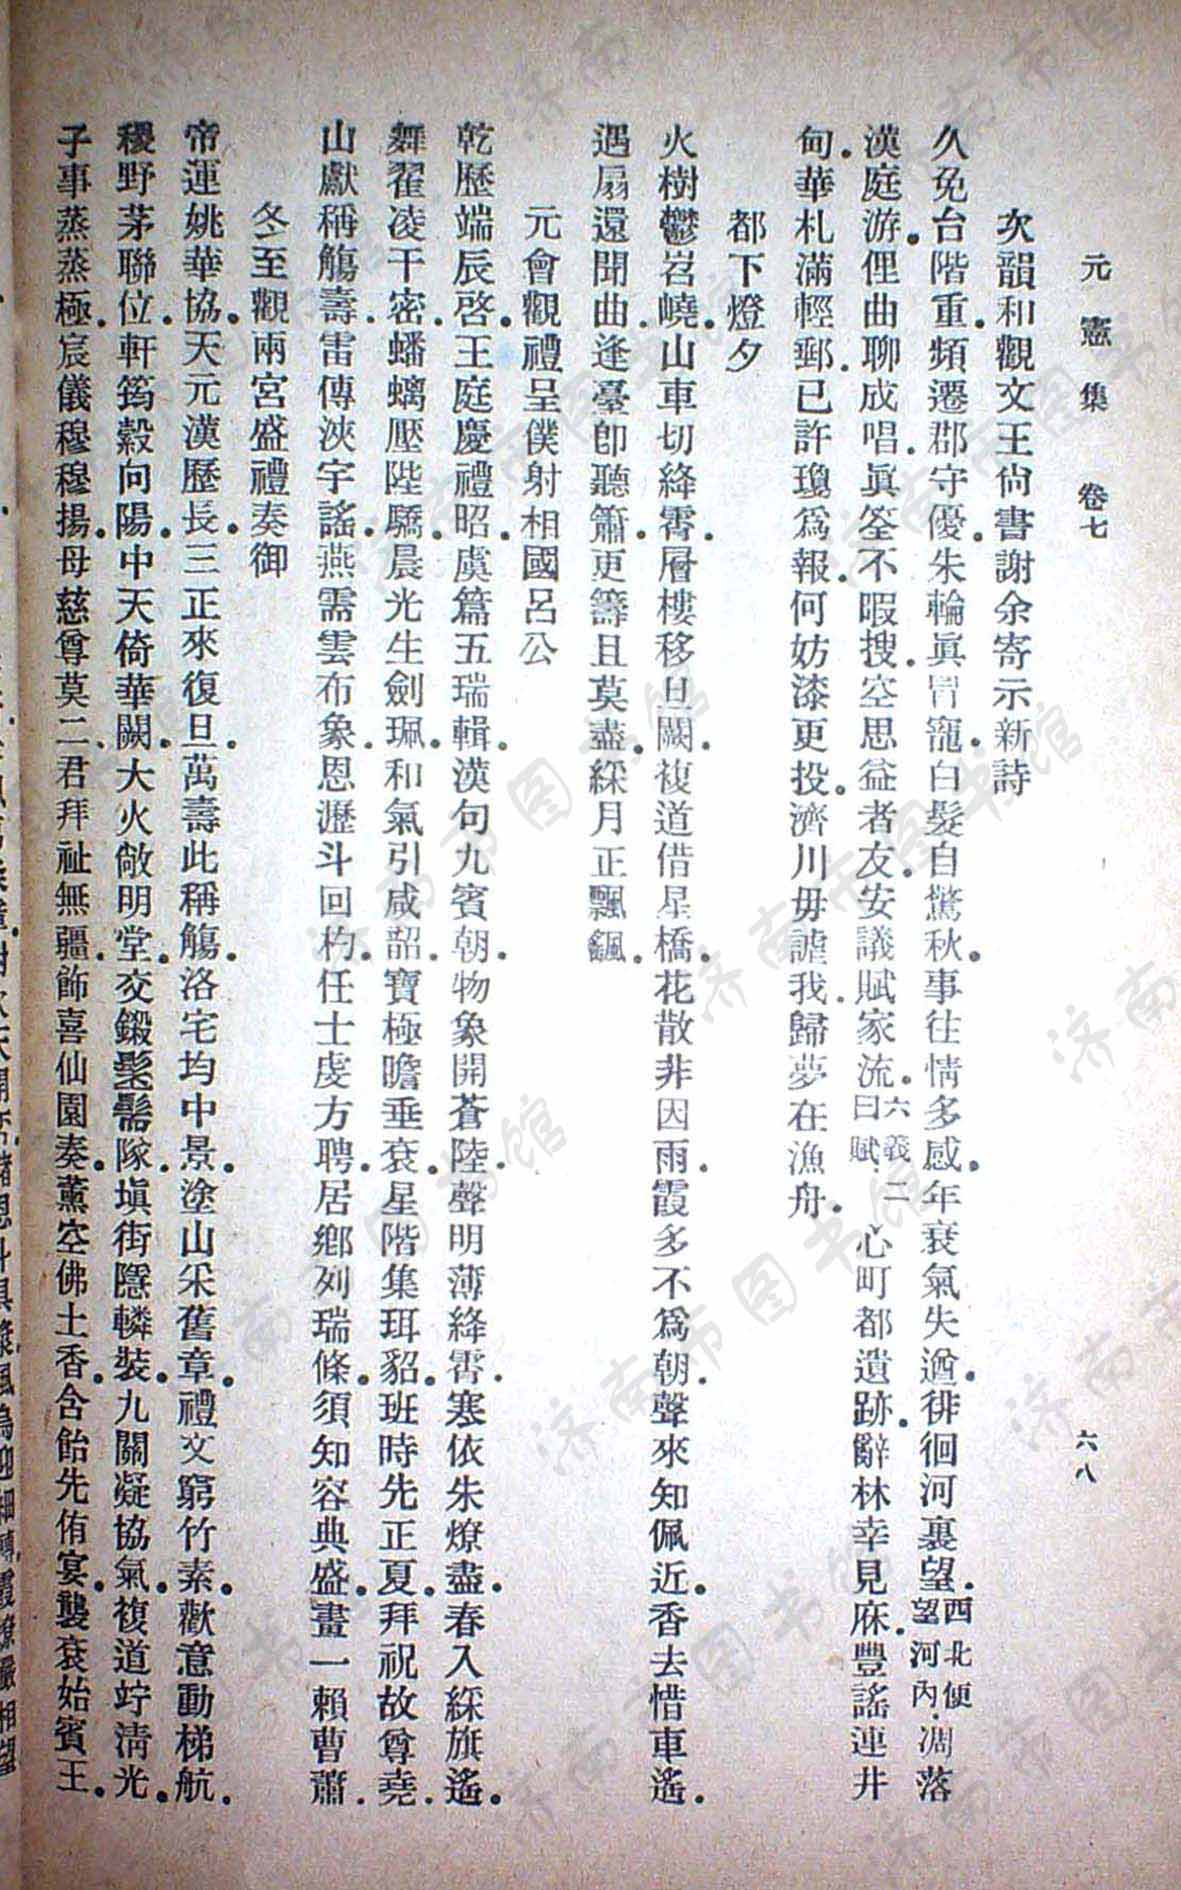 元憲集　卷七　六八
次韻和觀文王尙書謝余寄示新詩
久免台階重。頻遷郡守優。朱輪眞冒寵。白髮自驚秋。事往情多感。年衰氣失遒。徘徊河裏望。西北便望河內。凋落
漢庭游。俚曲聊成唱。眞筌不暇搜。空思益者友。安議賦家流。六義二曰賦。心町都遺跡。辭林幸見庥。豐謠連井
甸。華札滿輕郵。已許瓊爲報。何妨漆更投。濟川毋謔我。歸夢在漁舟。
都下燈夕
火樹鬱岧嶢。山車切絳霄。層樓移旦闕。複道借星橋。花散非因雨。霞多不爲朝。聲來知佩近。香去惜車遙。
遇扇還聞曲。逢臺卽聽簫。更籌且莫盡。綵月正飄颻。
元會觀禮呈僕射相國呂公
乾歷端辰啓。王庭慶禮昭。虞篇五瑞輯。漢句九賓朝。物象開蒼陸。聲明薄絳霄。寒依朱燎盡。春入綵旗遙。
舞翟凌干密。蟠螭壓陛驕。晨光生劍珮。和氣引咸韶。寶極瞻垂衮。星階集珥貂。班時先正夏。拜祝故尊堯。
山獻稱觴壽。雷傳浹宇謠。燕需雲布象。恩瀝斗回杓。任士虔方聘。居鄉列瑞條。須知容典盛。畫一賴曹蕭。
冬至觀兩宮盛禮奏御
帝運姚華協。天元漢歷長。三正來復旦。萬壽此稱觴。洛宅均中景。塗山釆舊章。禮文窮竹素。歡意動梯航。
稷野茅聯位。軒筠縠向陽。中天倚華闕。大火敞明堂。交鎩髦髵隊。塡街隱轔裝。九關凝協氣。複道竚淸光。
子事蒸蒸極。宸儀穆穆揚。母慈尊莫二。君拜祉無疆。飾喜仙園奏。薰空佛土香。含飴先侑宴。襲衮始賓王。